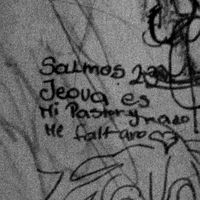 Salmos 23
Jeova es
Mi Pastor y nada
Me faltara